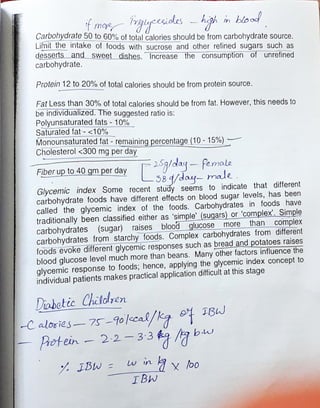 if more Trglycerides - high in blood
Carbohydrate 50 to 60% of total calories should be from carbohydrate source.
Limit the intake of foods with sucrose and other refined sugars such as
desserts and sweet dishes. Increase the consumption of unrefined
carbohydrate.
Protein 12 to 20% of total calories should be from protein source.
Fat Less than 30% of total calories should be from fat. However, this needs to
be individualized. The suggested ratio is:
Polyunsaturated fats - 10%
Saturated fat - <10%
Monounsaturated fat - remaining percentage (10 - 15%)
Cholesterol <300 mg per day
Fiber up to 40 gm per day
25g/day - female
38 g/day - male
Glycemic index Some recent study seems to indicate that different
carbohydrate foods have different effects on blood sugar levels, has been
called the glycemic index of the foods. Carbohydrates in foods have
traditionally been classified either as 'simple' (sugars) or 'complex'. Simple
carbohydrates (sugar) raises blood glucose more than complex
carbohydrates from starchy foods. Complex carbohydrates from different
foods evoke different glycomic responses such as bread and potatoes raises
blood glucose level much more than beans. Many other factors influence the
glycemic response to foods; hence, applying the glycemic index concept to
individual patients makes practical application difficult at this stage
Diabetic Children
- Calories - 75-90 kcal/kg of IBW
- Protein - 2.2-3.3 g /kg b.w
% IBW = w in kg x 100
IBW